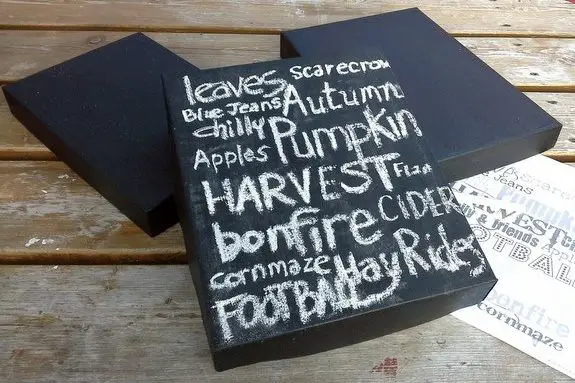 leaves Scarecrow
Blue Jeans Autumn
chilly Pumpkin
Apples
HARVEST
bonfire CIDER
cornmaze Hay Rides
FOOTBALL
Jeans
Pumpkin
& friends
bonfire
cornmaze